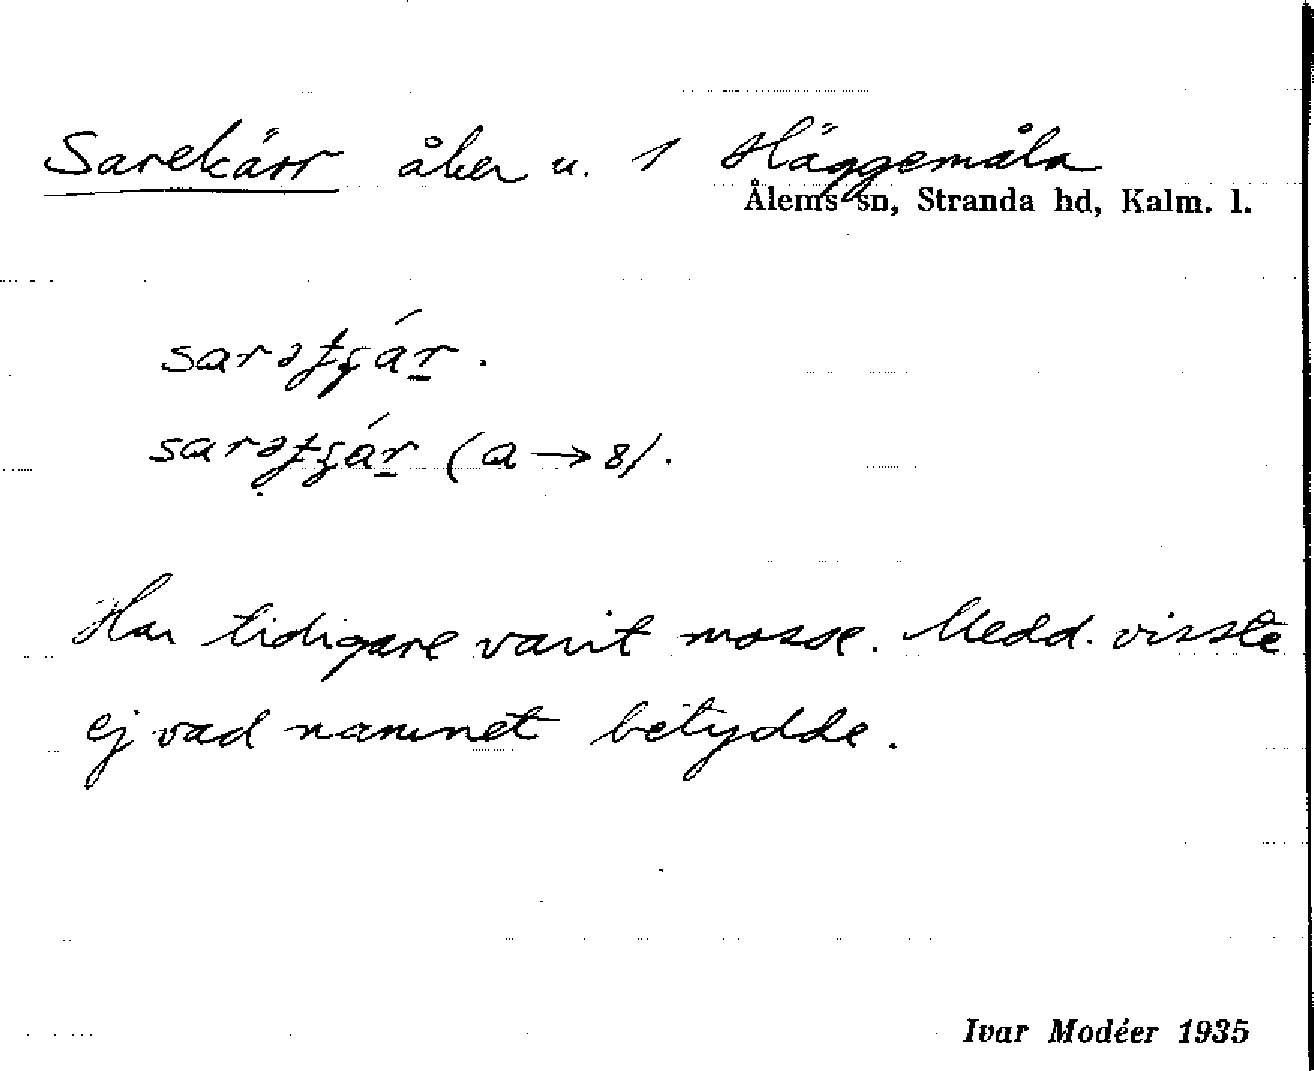 Sarekärr åker u. 1 Häggemåla
Ålems sn, Stranda hd, Kalm. l.
(a → 8).
Har tidigare varit mosse. Medd. visste
ej vad namnet betydde.
Ivar Modéer 1935